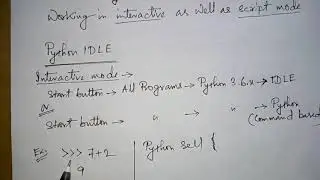 Working in interactive as well as script mode
Python IDLE
Interactive mode →
Start button → All Programs → Python 3.6.x → IDLE
or
Start button → " → " → Python
(Command based
Ex: >>> 7+2 Python Sell {
9